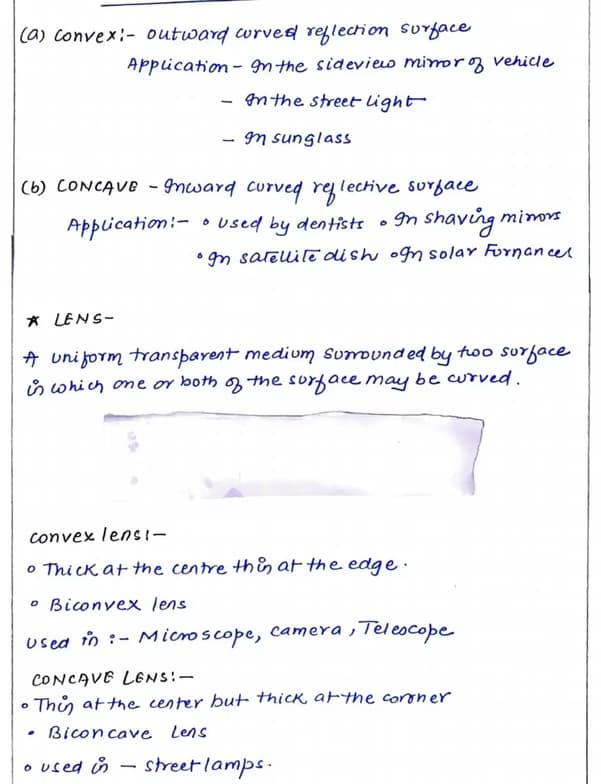 (a) Convex:- outward curved reflection surface
Application - In the sideview mirror of vehicle
- In the street light
- In sunglass
(b) CONCAVE - Inward curved reflective surface
Application:- o used by dentists o In shaving mirrors
o In satellite dish o In solar Fornances
★ LENS-
A uniform transparent medium surrounded by two surface
in which one or both of the surface may be curved.
convex lens:-
o Thick at the centre thin at the edge.
o Biconvex lens
used in :- Microscope, camera, Telescope
CONCAVE LENS:-
o Thin at the center but thick at the coroner
• Biconcave Lens
o used in - street lamps.